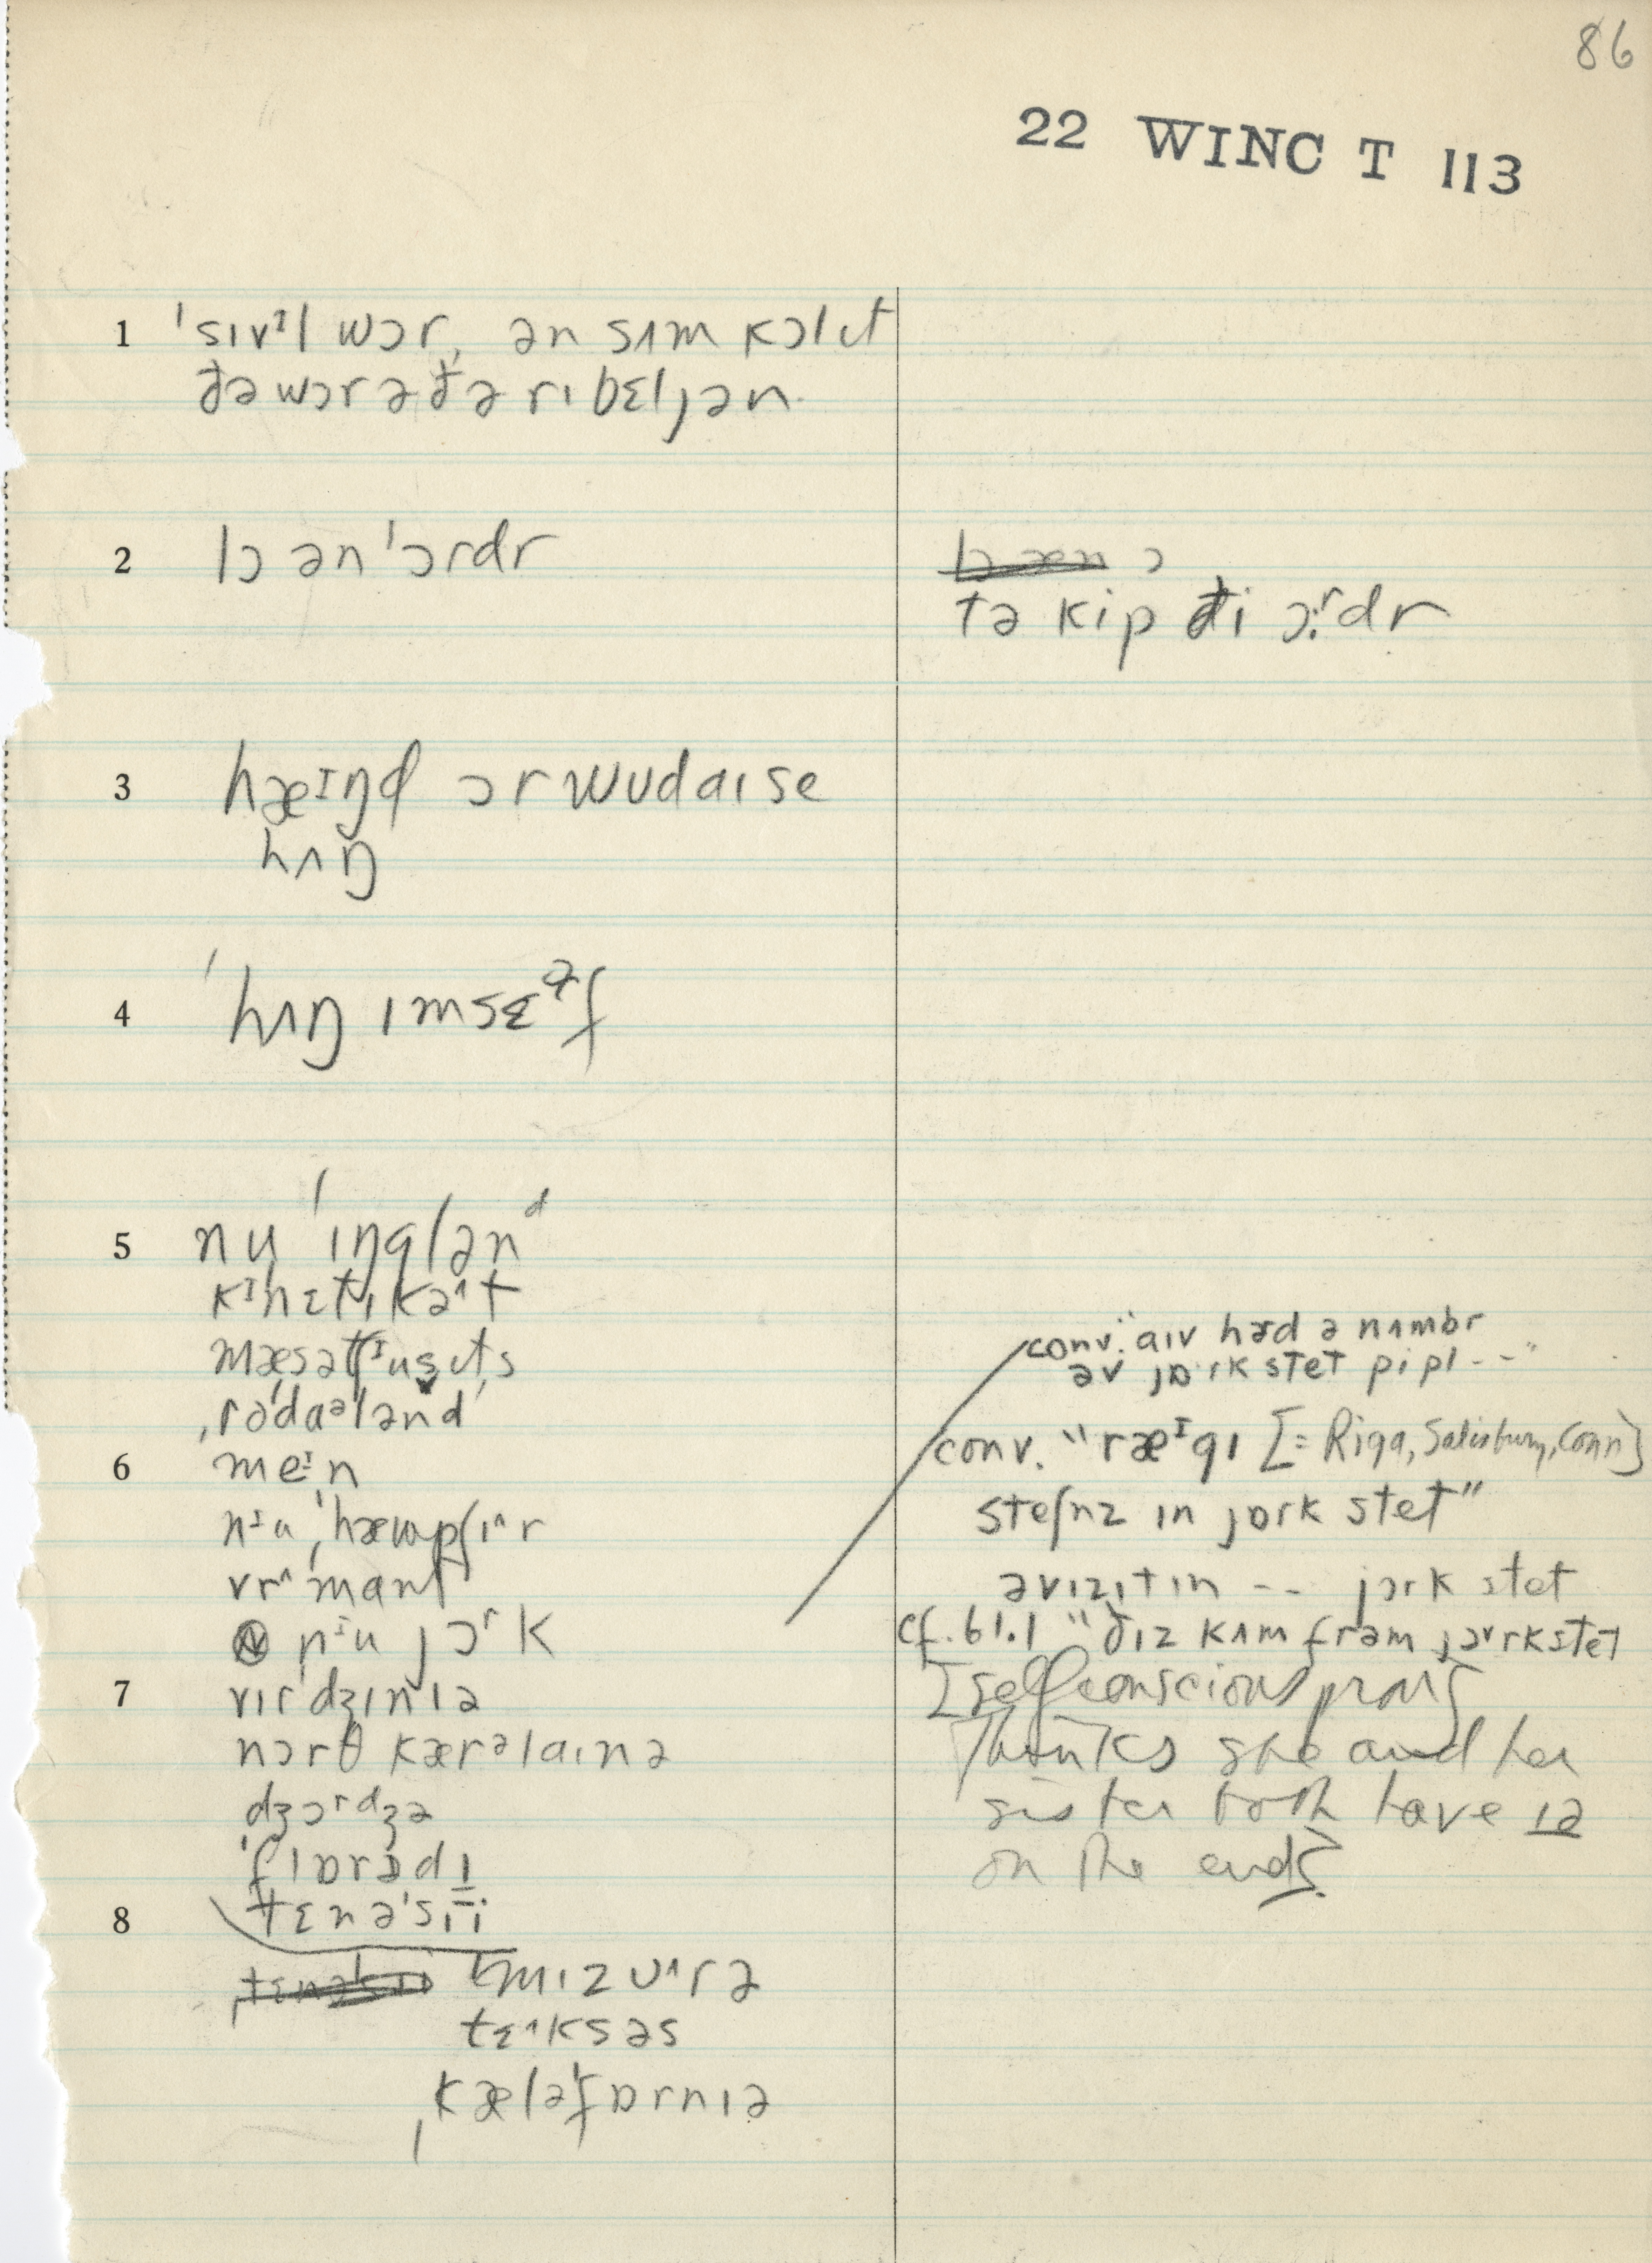 86
22 WINC T 113
1 ˈsɪvᶦl wɔr, ən sʌm kɔl ɪt
ðə wɔr ə ðə rɪbɛljən.
2 lɔ ən ˈɔrdr
ɔ
tə kip ði ɔ:ʳdr
3 hæᶦŋd ɔr wudaɪ se
hʌŋ
4 ˈhʌŋ ɪmsɛᵊf
5 nu ˈɪŋglənᵈ
mæsətʃᶦusɪts
ˌrodaᵊlənd
6 meᶦn
vrˈmant
nᶦu jɔʳk
7 vɪrˈdʒɪnɪə
nɔrθ kærᵊlaɪnə
dʒɔʳdʒə
8 tɛnəˈsɪi
mɪzuˆrə
tɛˆksəs
ˌkæləˈfɒrnɪə
conv. "aɪv hæd ə nʌmbr
əv jɒrk stet pipl --"
conv. "ræᶦgɪ [= Riga, Salisbury, Conn]
steʃnz ɪn jɒrk stet"
əvɪzɪtɪn -- jɔrk stet
cf. 61.1 "ðɪz kʌm frəm jɔrkstet
[selfconscious pron]
Thinks she and her
sister both have ɪə
on the end]